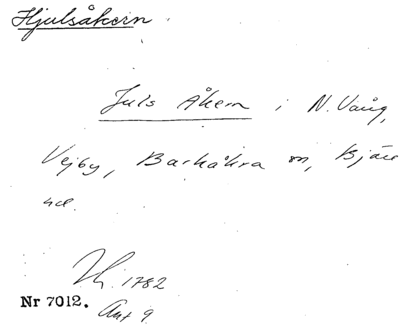 Hjulsåkern
Juls Åkern i N. Vång,
Vejby, Barkåkra sn, Bjäre
hd.
1782
Nr 7012.
Ant 9